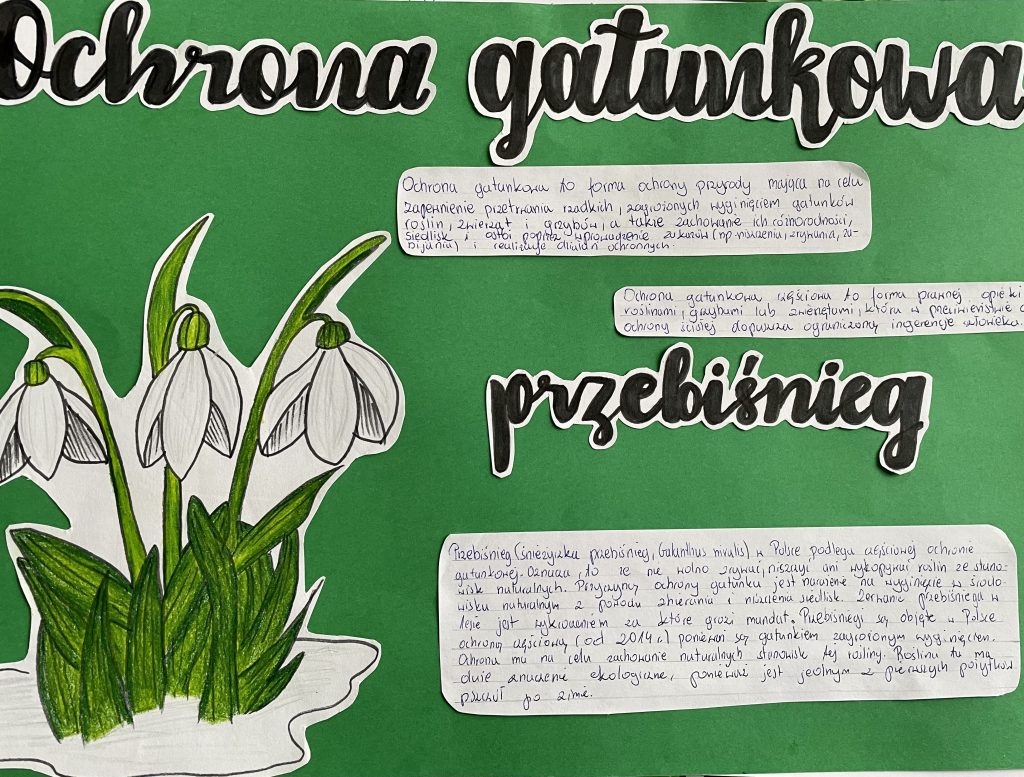 Ochrona gatunkowa
Ochrona gatunkowa to forma ochrony przyrody mająca na celu
zapewnienie przetrwania rzadkich, zagrożonych wyginięciem gatunków
roślin, zwierząt i grzybów, a także zachowanie ich różnorodności,
siedlisk i ostoi poprzez wprowadzenie zakazów (np. niszczenia, zrywania, za-
bijania) i realizację działań ochronnych.
Ochrona gatunkowa częściowa to forma prawnej opieki
roślinami, grzybami lub zwierzętami, która w przeciwieństwie
ochrony ścisłej dopuszcza ograniczoną ingerencję człowieka.
przebiśnieg
Przebiśnieg (śnieżyczka przebiśnieg, Galanthus nivalis) w Polsce podlega częściowej ochronie
gatunkowej. Oznacza, to że nie wolno zrywać, niszczyć ani wykopywać roślin ze stano-
wisk naturalnych. Przyczyną ochrony gatunku jest narażenie na wyginięcie w środo-
wisku naturalnym z powodu zbierania i niszczenia siedlisk. Zerwanie przebiśniega w
lesie jest wykroczeniem za które grozi mandat. Przebiśniegi są objęte w Polsce
ochroną częściową (od 2014r.) ponieważ są gatunkiem zagrożonym wyginięciem.
Ochrona ma na celu zachowanie naturalnych stanowisk tej rośliny. Roślina ta ma
duże znaczenie ekologiczne, ponieważ jest jednym z pierwszych pożytków
pszczół po zimie.